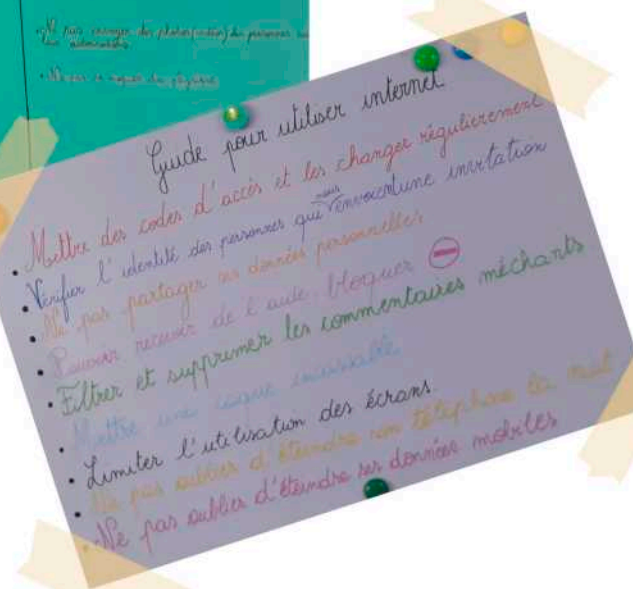 • Ne pas changer des photos [...] des personnes
• Ne pas se moquer du physique
Guide pour utiliser internet
• Mettre des codes d'accès et les changer régulièrement
nous
• Vérifier l'identité des personnes qui envoient une invitation
• Ne pas partager ses données personnelles
• Pouvoir recevoir de l'aide, bloquer
• Filtrer et supprimer les commentaires méchants
• Mettre une coque incassable
• Limiter l'utilisation des écrans.
• Ne pas oublier d'éteindre son téléphone la nuit
• Ne pas oublier d'éteindre ses données mobiles